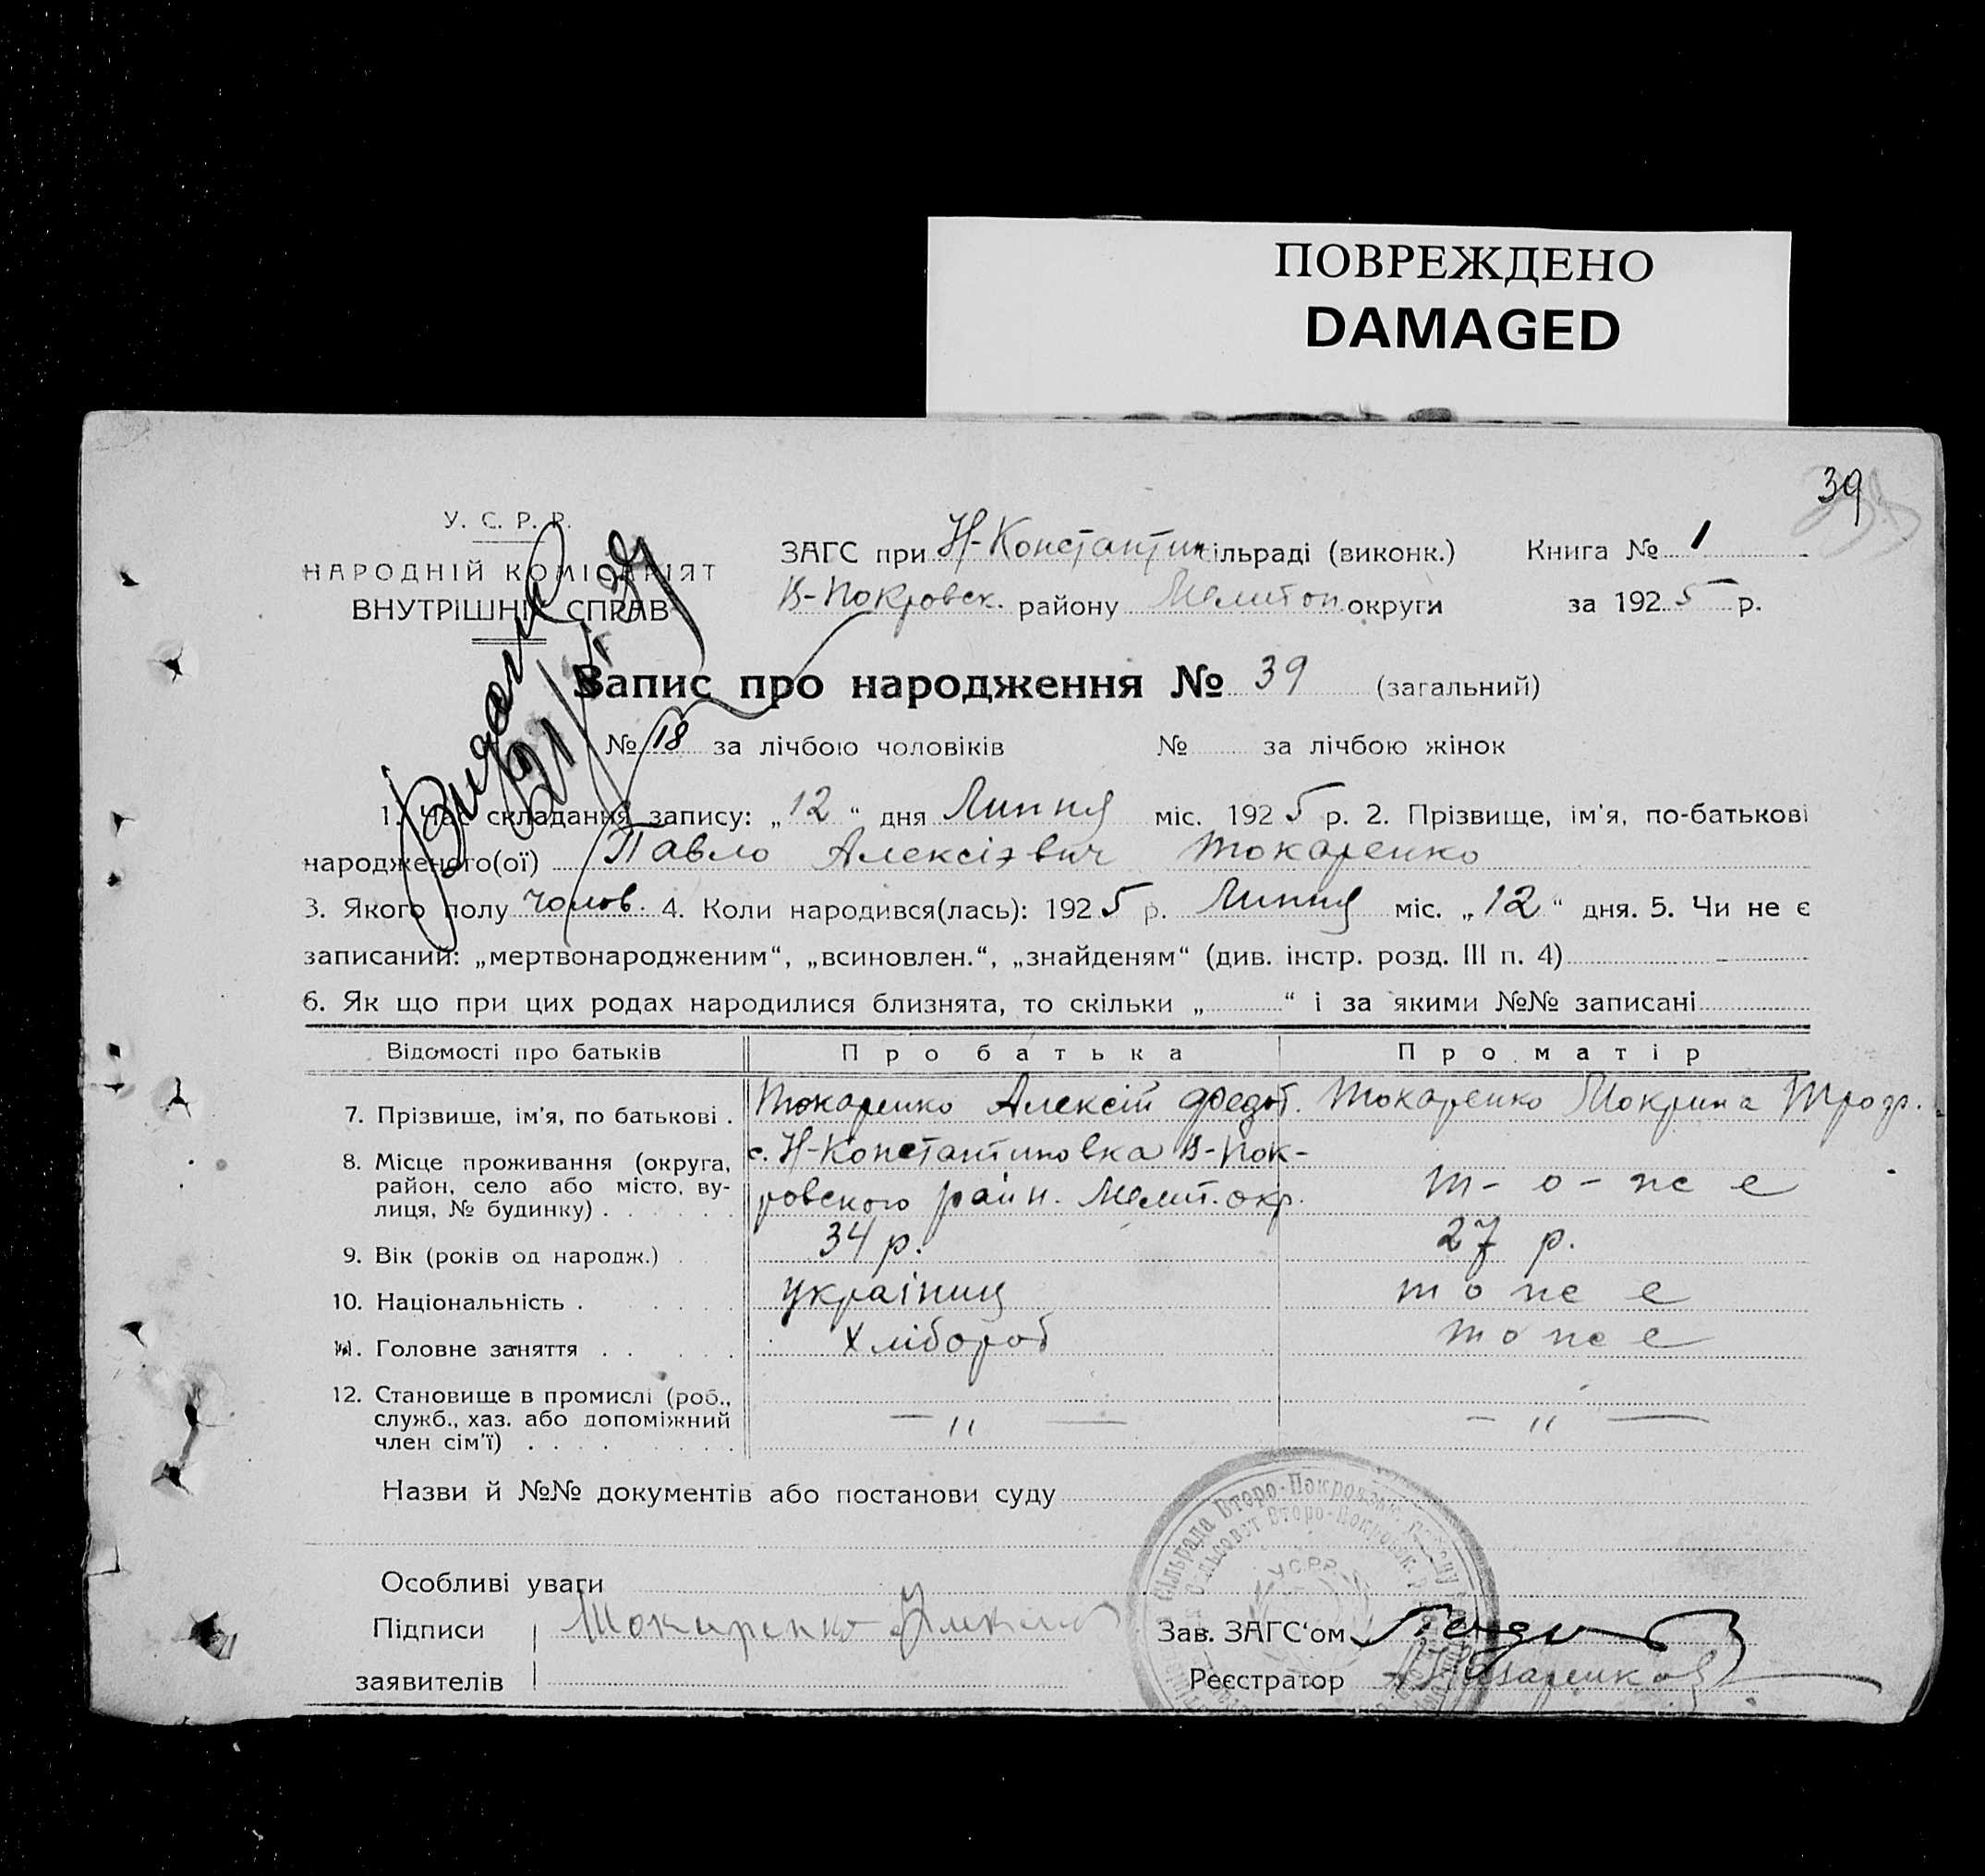 ПОВРЕЖДЕНО
DAMAGED
39
У. С. Р. Р.
НАРОДНІЙ КОМІСАРІЯТ
ВНУТРІШНІХ СПРАВ
ЗАГС при Н-Константин сільраді (виконк.) Книга № 1
В-Покровск. району Мелитоп округи за 1925 р.
Видана
Запис про народження № 39 (загальний)
№ 18 за лічбою чоловіків № за лічбою жінок
1. Час складання запису: „12“ дня Липня міс. 1925 р. 2. Прізвище, ім'я, по-батькові
народженого(ої) Павло Алексієвич Токаренко
3. Якого полу чолов. 4. Коли народився(лась): 1925 р. Липня міс. „12“ дня. 5. Чи не є
записаний: „мертвонародженим“, „всиновлен.“, „знайденям“ (див. інстр. розд. III п. 4)
6. Як що при цих родах народилися близнята, то скільки „ “ і за якими №№ записані
Відомості про батьків Про батька Про матір
7. Прізвище, ім'я, по батькові . Токаренко Алексій Федот. Токаренко Мокрина
8. Місце проживання (округа, с. Н-Константиновка В-Пок-
район, село або місто, ву- ровского райн. Мелит. окр. т-о-же
лиця, № будинку)
9. Вік (років од народж.) 34 р. 27 р.
10. Національність . українц тоже
11. Головне заняття . . хлібороб тоже
12. Становище в промислі (роб., 
служб., хаз. або допоміжний — „ — — „ —
член сім'ї) . . . .
Назви й №№ документів або постанови суду
Особливі уваги
Підписи Токаренко
заявителів
Зав. ЗАГС'ом
Реєстратор
Сільрада Второ-Покровськ. району
Сільсовет Второ-Покровск.
УСРР